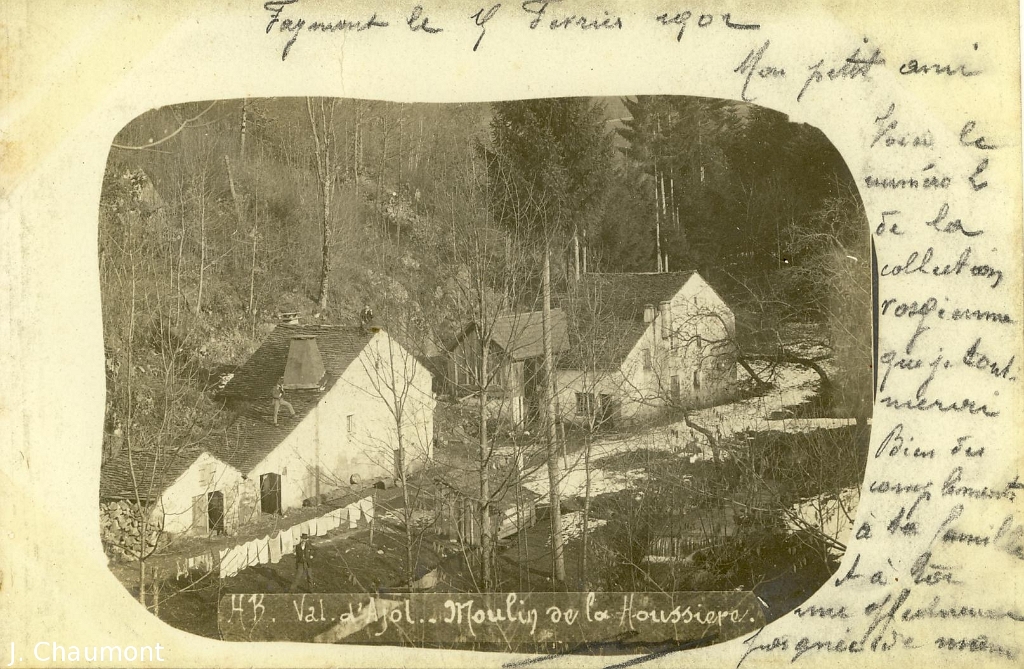 Faymont le 15 Fevrier 1902
Mon petit ami
Voici le
numéro 2
de la
collection
vosgienne
que je conti-
nuerai
Bien des
compliments
à ta famille
et à toi
une affectueuse
poignée de main
HK. Val. d'Ajol.. Moulin de la Houssiere.
J. Chaumont